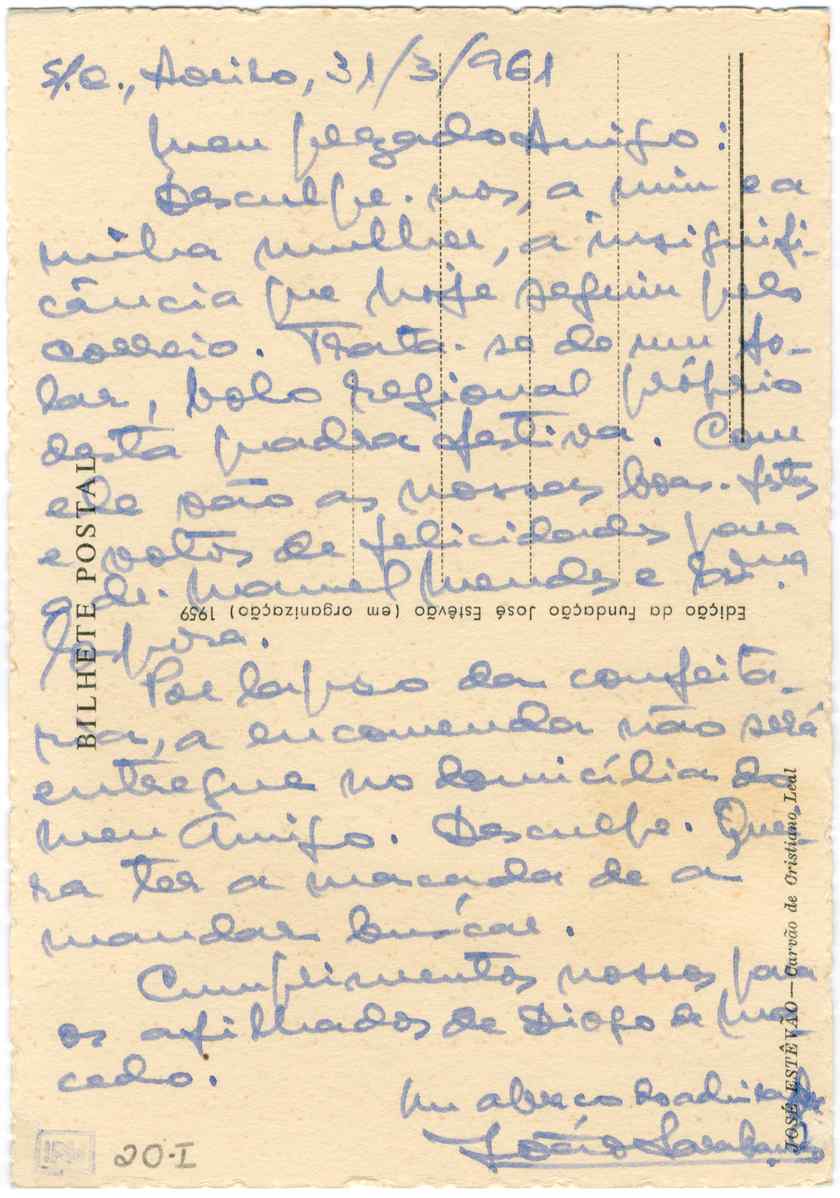 S/C., Aveiro, 31/3/961
Meu prezado Amigo:
Desculpe-nos, a mim e a
minha mulher, a insignifi-
cância que hoje seguiu pelo
correio. Trata-se de um fo-
lar, bolo regional próprio
desta quadra festiva. Com
ele são as nossas boas-festas
e votos de felicidades para
o dr. Manuel Mendes e Exma.
Esposa.
Por lapso da confeita-
ria, a encomenda não será
entregue no domicília do
meu Amigo. Desculpe. Quei-
ra ter a maçada de a
mandar buscar.
Cumprimentos nossos para
os afilhados de Diogo de Ma-
cedo.
Um abraço do admirador
João Sarabando
BILHETE POSTAL
Edição da Fundação José Estêvão (em organização) 1959
JOSÉ ESTÊVÃO—Carvão de Cristiano Leal
20-I